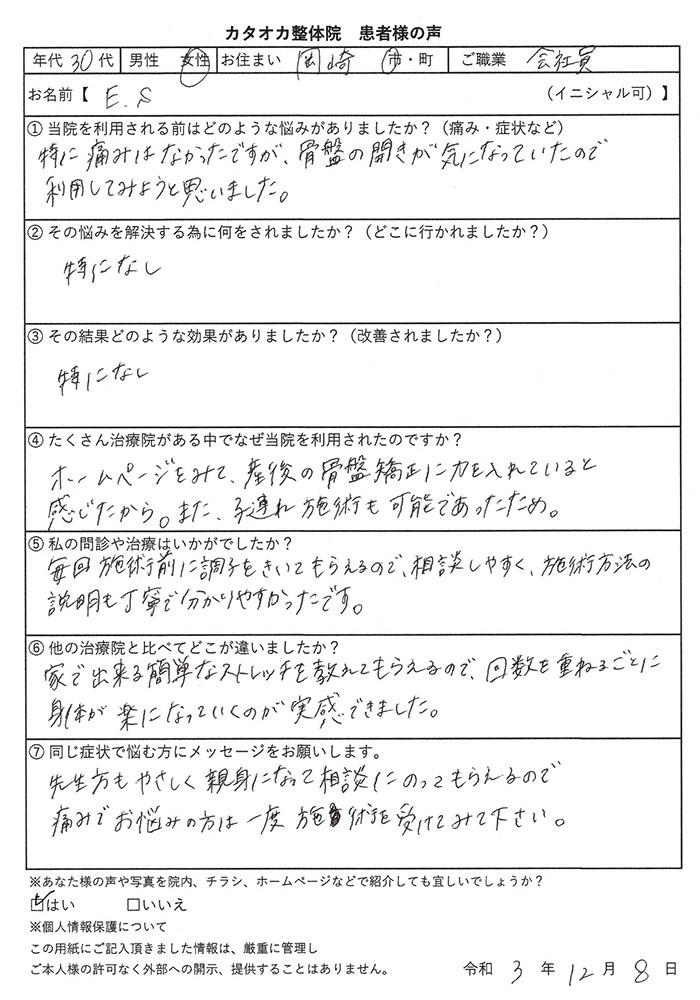 カタオカ整体院　患者様の声
年代 30 代 男性 女性 お住まい 岡崎 市・町 ご職業 会社員
お名前【 E.S （イニシャル可）】
① 当院を利用される前はどのような悩みがありましたか？（痛み・症状など）
特に痛みはなかったですが、骨盤の開きが気になっていたので
利用してみようと思いました。
② その悩みを解決する為に何をされましたか？（どこに行かれましたか？）
特になし
③ その結果どのような効果がありましたか？（改善されましたか？）
特になし
④ たくさん治療院がある中でなぜ当院を利用されたのですか？
ホームページをみて、産後の骨盤矯正に力を入れていると
感じたから。また、子連れ施術も可能であったため。
⑤ 私の問診や治療はいかがでしたか？
毎回施術前に調子をきいてもらえるので、相談しやすく、施術方法の
説明も丁寧で分かりやすかったです。
⑥ 他の治療院と比べてどこが違いましたか？
家で出来る簡単なストレッチを教えてもらえるので、回数を重ねるごとに
身体が楽になっていくのが実感できました。
⑦ 同じ症状で悩む方にメッセージをお願いします。
先生方もやさしく親身になって相談にのってもらえるので
痛みでお悩みの方は一度施術を受けてみて下さい。
※あなた様の声や写真を院内、チラシ、ホームページなどで紹介しても宜しいでしょうか？
☑はい □いいえ
※個人情報保護について
この用紙にご記入頂きました情報は、厳重に管理し
ご本人様の許可なく外部への開示、提供することはありません。 令和 3 年 12 月 8 日